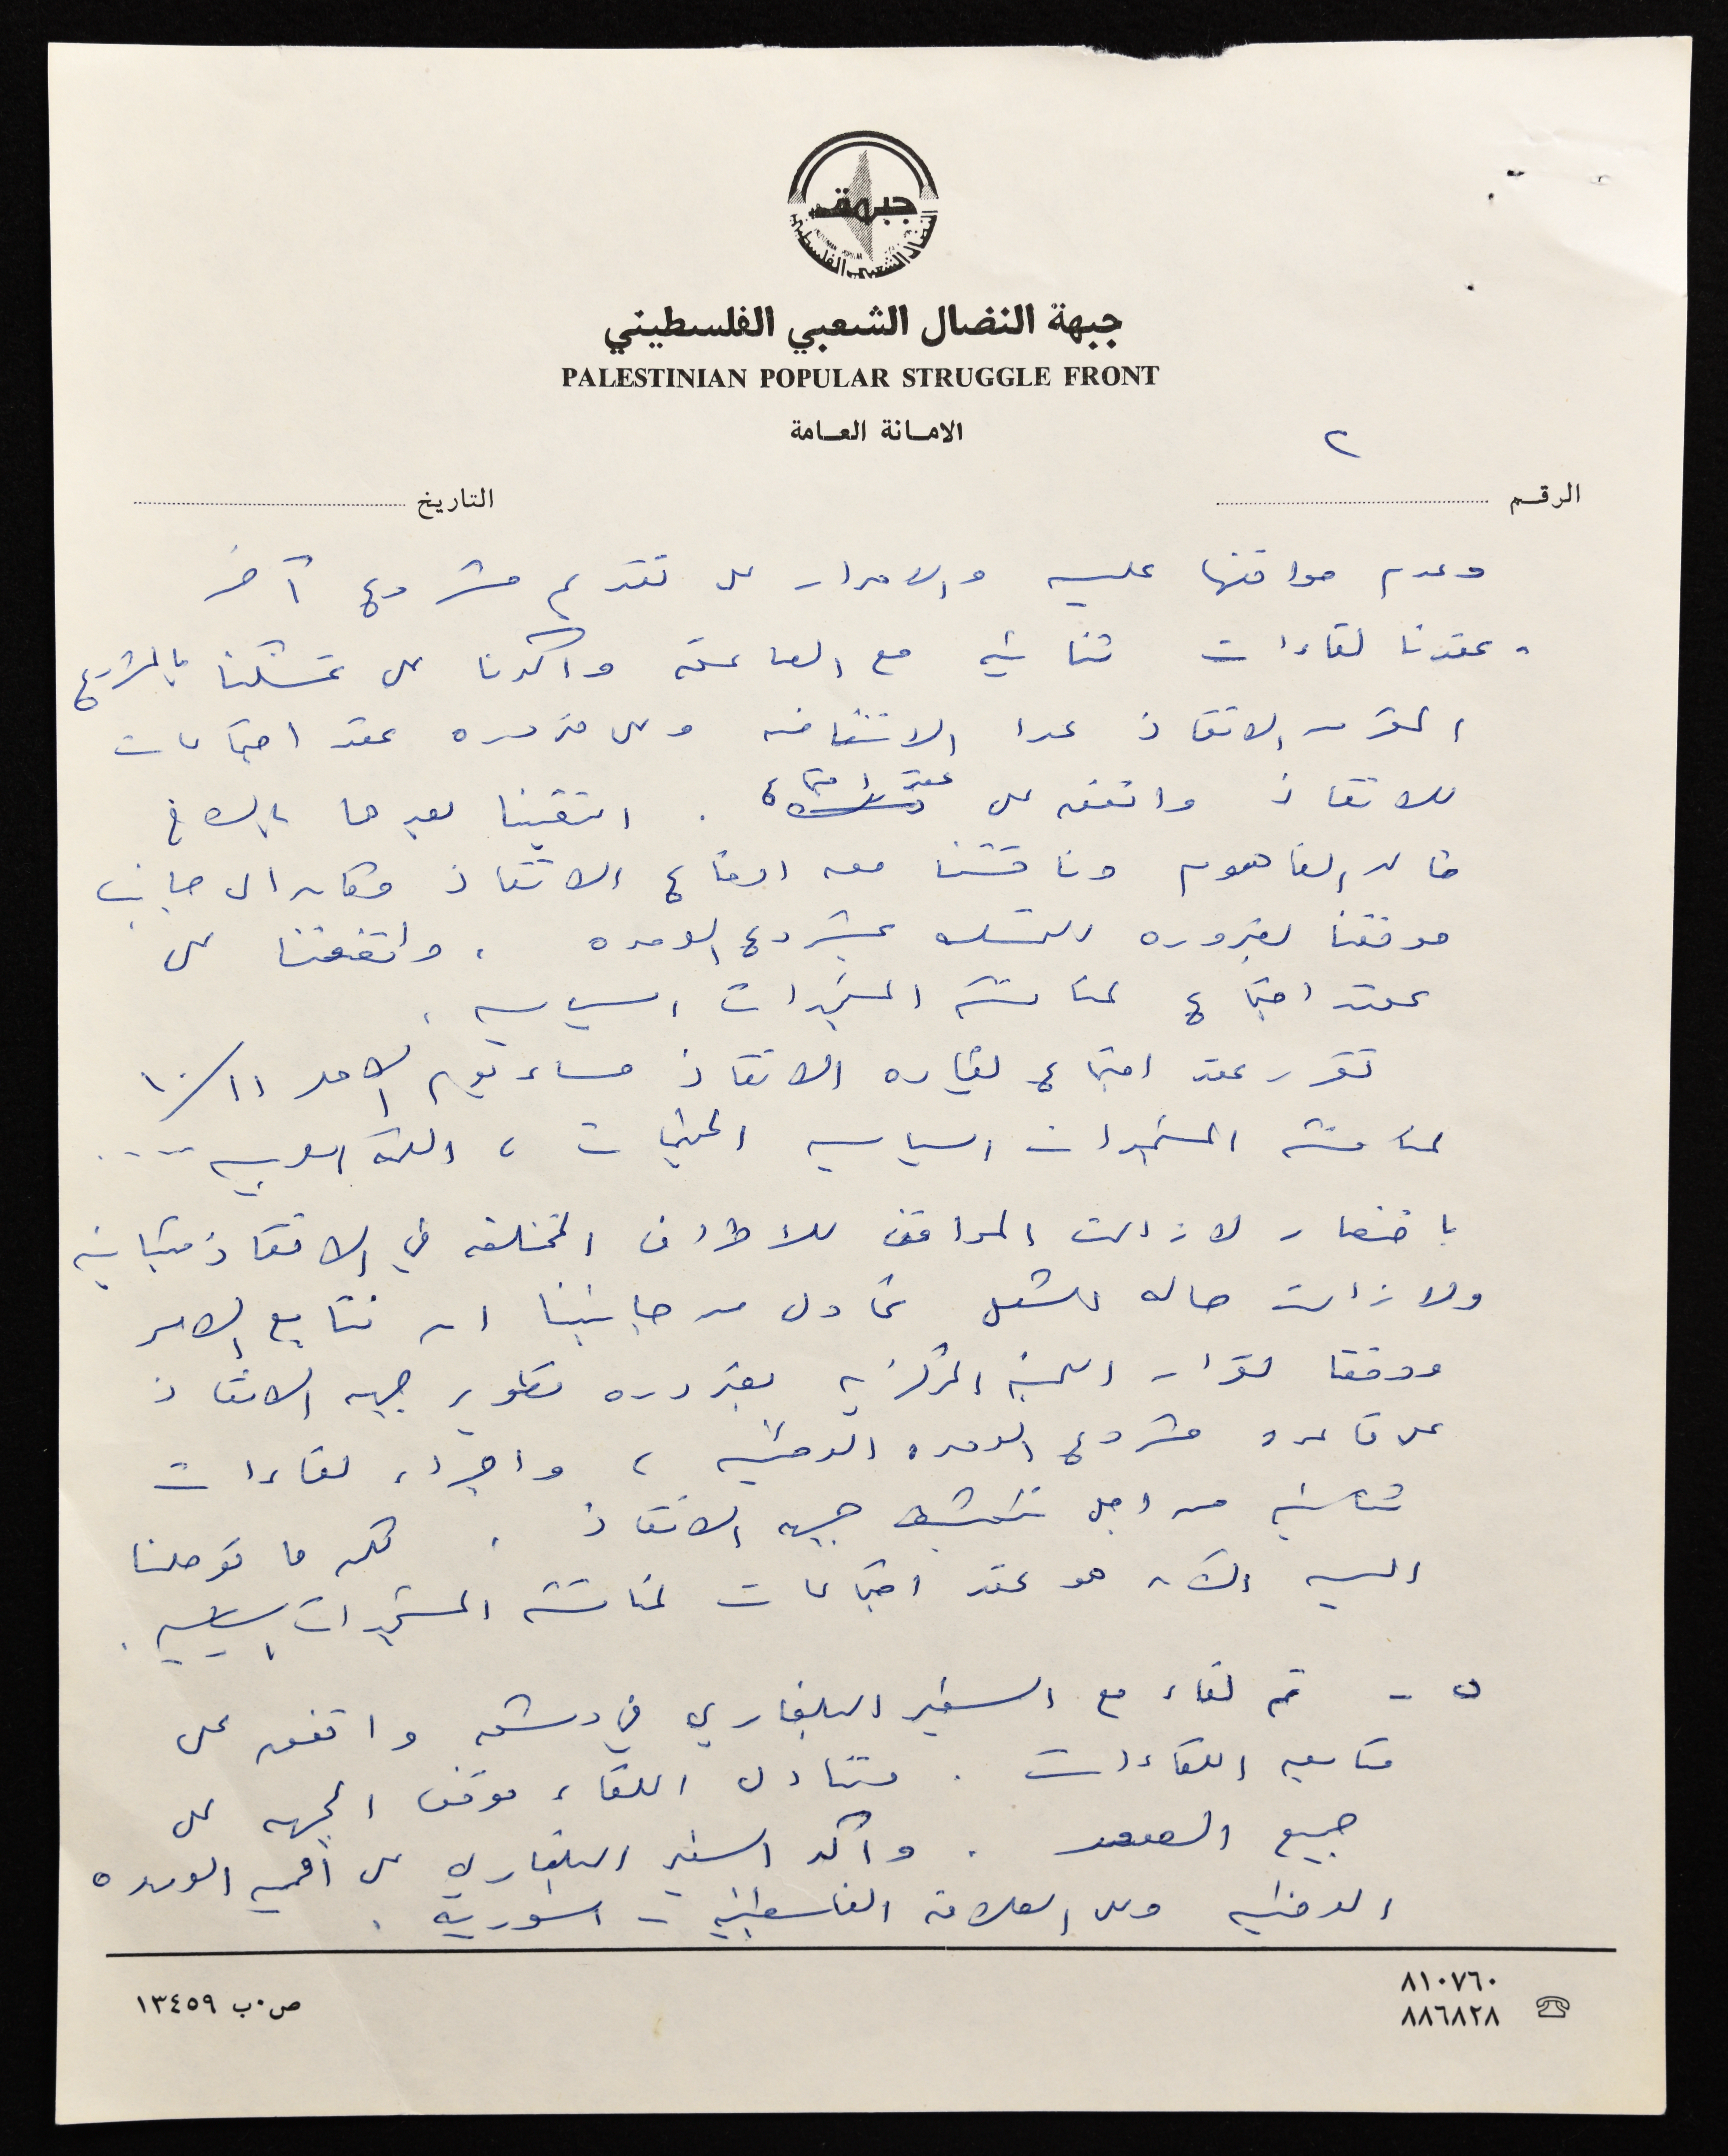 جبهة
النضال الشعبي الفلسطيني
جبهة النضال الشعبي الفلسطيني
PALESTINIAN POPULAR STRUGGLE FRONT
الامانة العامة
٢
الرقم
التاريخ
وعدم موافقتها عليه والاصرار على تقديم مشروع آخر
. عقدنا لقاءات ثنائيه مع الصاعقه واكدنا على تمسكنا بالمشروع
المقر من الانقاذ عدا الانتفاضه وعلى ضروره عقد اجتماعات
للانقاذ واتفق على عقد اجتماع . التقينا بعدها بالاخ
خالد الفاهوم وناقشنا معه اوضاع الانقاذ وكان الى جانب
موقفنا بضروره التمسك بمشروع الوحده ، واتفقنا على
عقد اجتماع لمناقشة المستجدات السياسيه .
تقرر عقد اجتماع لقياده الانقاذ مساء يوم الاحد ١١/١٠
لمناقشة المستجدات السياسيه المخيمات ، القمة العربيه ....
باختصار لازالت المواقف للاطراف المختلفه في الانقاذ متباينه
ولازالت حاله الشلل نحاول من جانبنا ان نتابع الامر
ووفقا لقرار اللجنه المركزيه بضروره تطوير جبهه الانقاذ
على قاعده مشروع الوحده الوطنيه ، واجراء لقاءات
ثنائيه من اجل تنشيط جبهه الانقاذ . لكن ما توصلنا
اليه الآن هو عقد اجتماعات لمناقشة المستجدات السياسيه .
٥ - تم لقاء مع السفير البلغاري في دمشق واتفق على
متابعه اللقاءات . وتناول اللقاء موقف الجبهه على
جميع الصعد . واكد السفير البلغاري على أهميه الوحده
الوطنيه وعلى العلاقه الفلسطينيه - السوريه .
٨١٠٧٦٠
٨٨٦٨٢٨
ص.ب ١٣٤٥٩